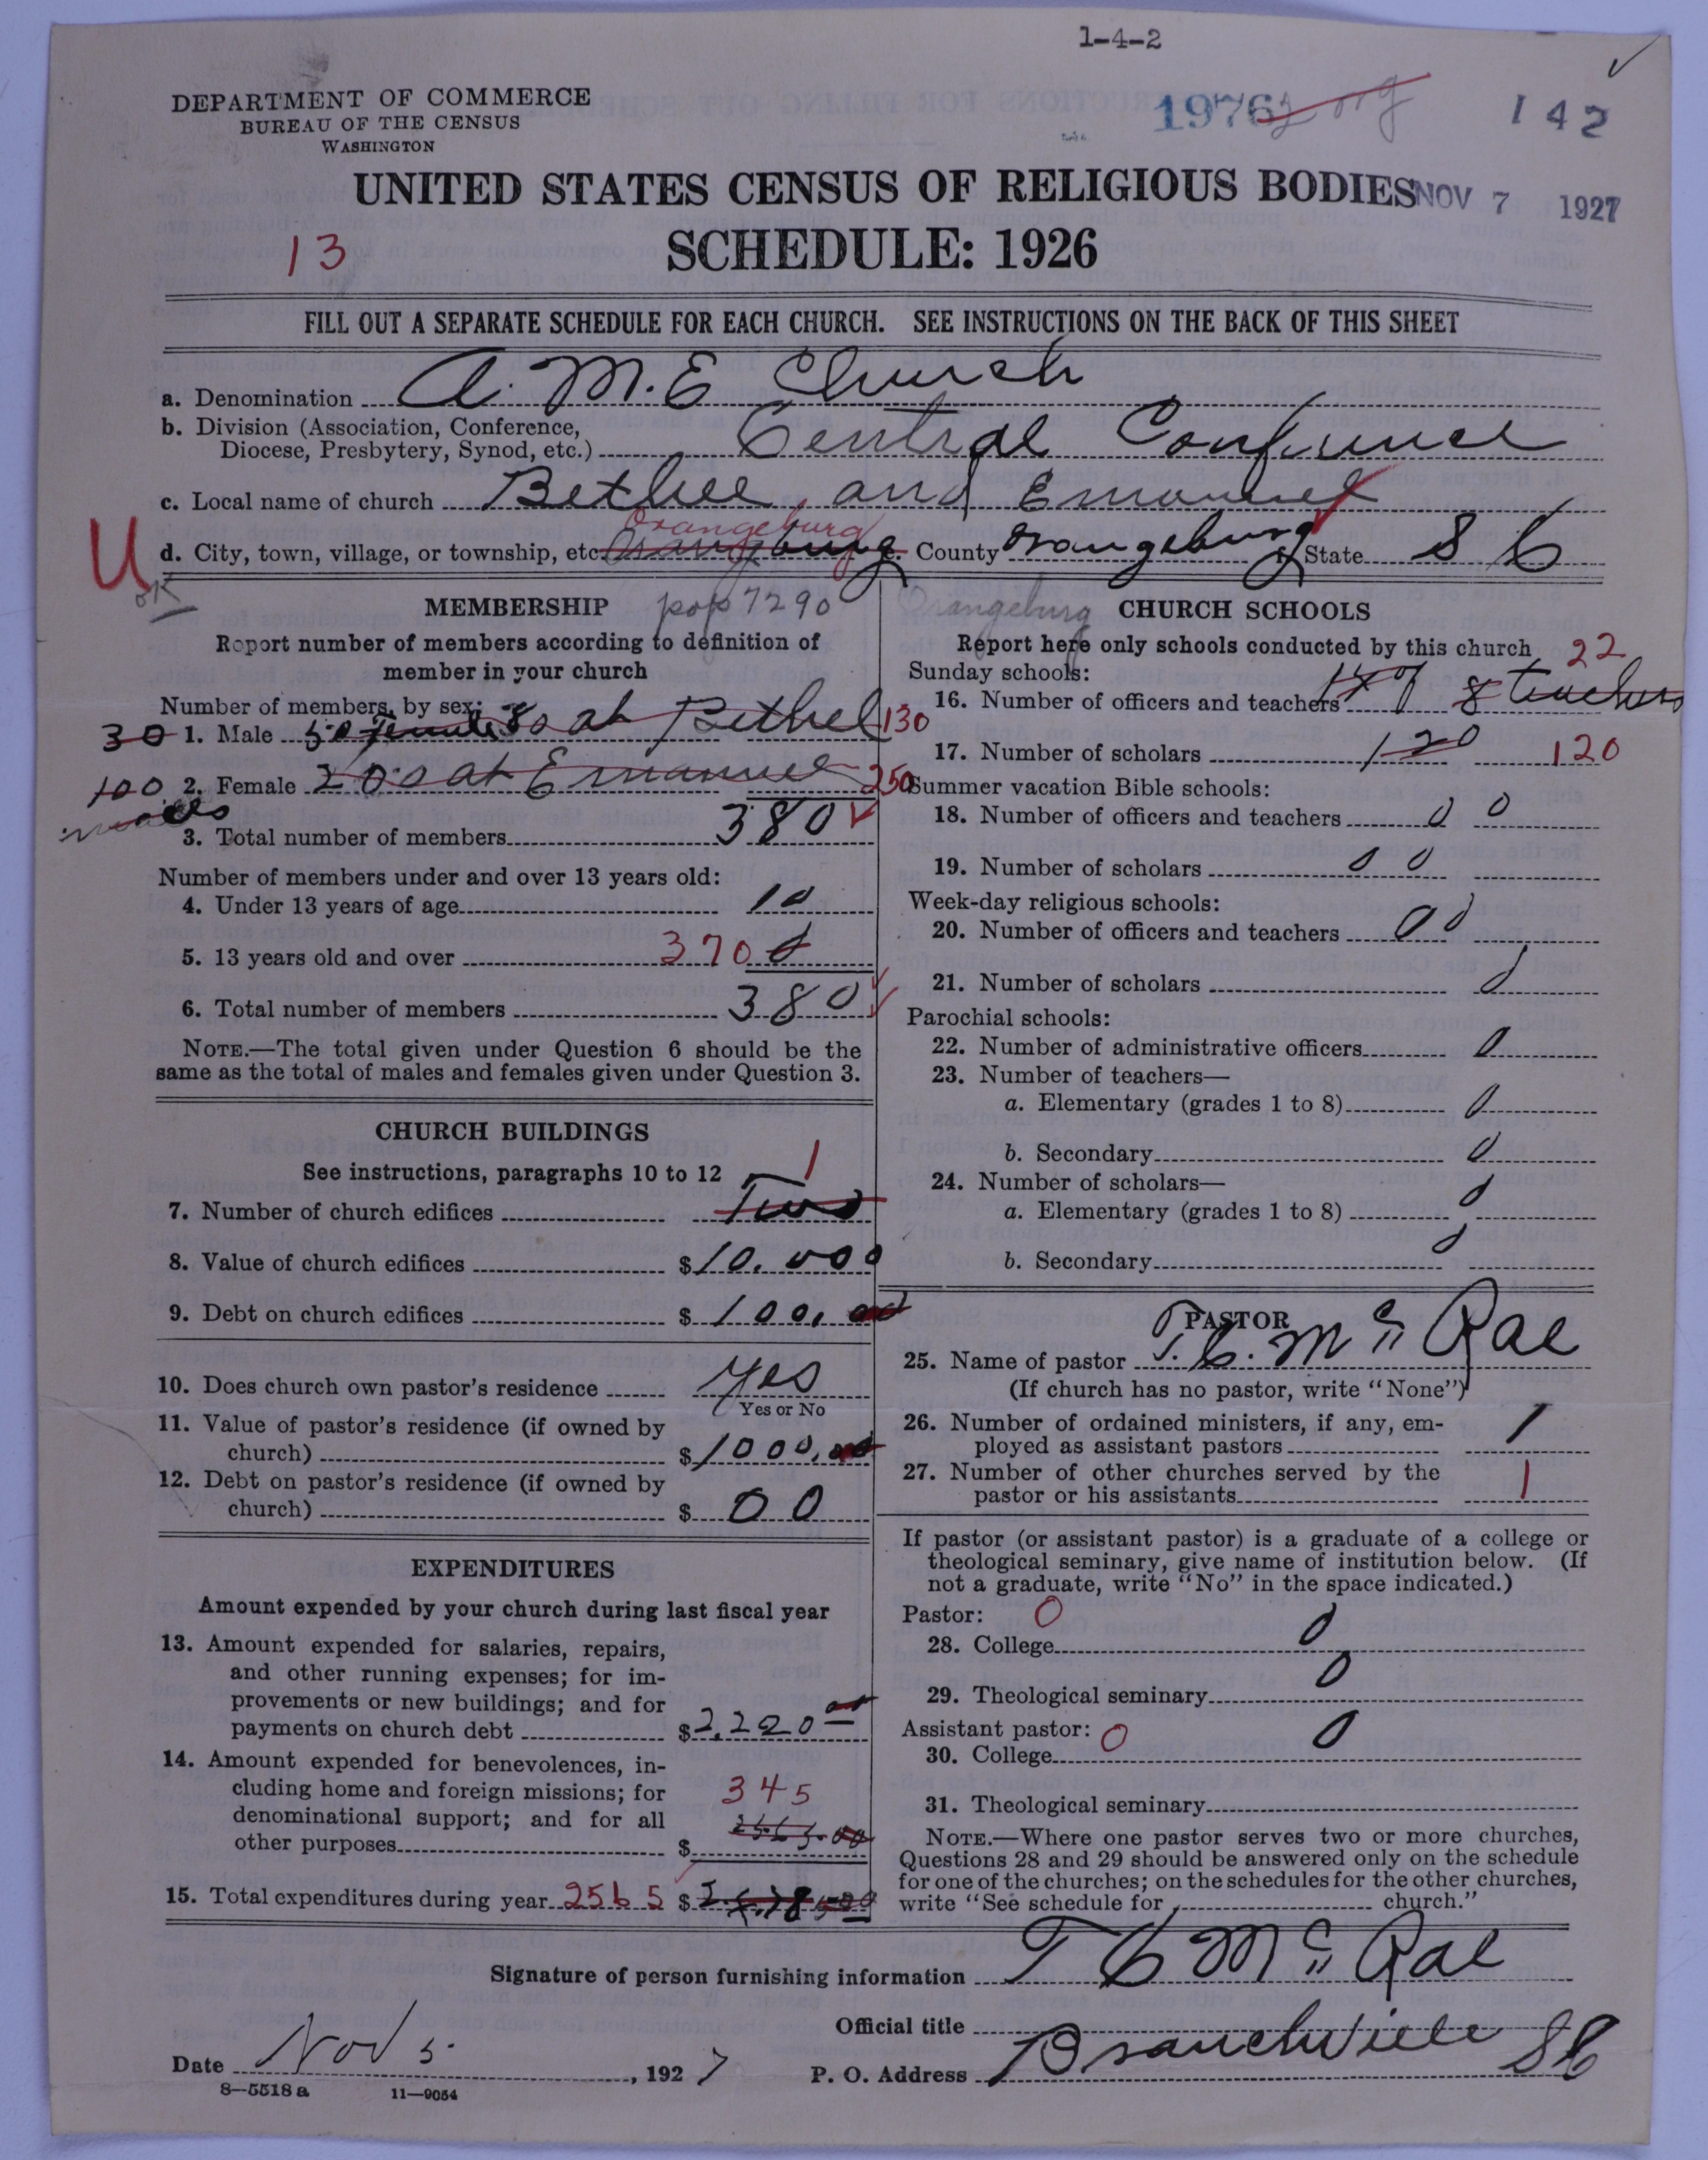 1-4-2
DEPARTMENT OF COMMERCE
BUREAU OF THE CENSUS
WASHINGTON
1976 2 org 142
UNITED STATES CENSUS OF RELIGIOUS BODIES NOV 7 1927
13 SCHEDULE: 1926
FILL OUT A SEPARATE SCHEDULE FOR EACH CHURCH. SEE INSTRUCTIONS ON THE BACK OF THIS SHEET
a. Denomination A. M. E Church
b. Division (Association, Conference,
Diocese, Presbytery, Synod, etc.) Central Conference
c. Local name of church Bethel and Emanuel
Orangeburg
U d. City, town, village, or township, etc. Orangeburg e. County Orangeburg f. State S C
OK
MEMBERSHIP pop 7290
Report number of members according to definition of
member in your church
Number of members, by sex:
30 1. Male 50 Female 80 at Bethel 130
100 2. Female 200 at Emanuel 250
males
3. Total number of members 380
Number of members under and over 13 years old:
4. Under 13 years of age 10
5. 13 years old and over 370 0
6. Total number of members 380
NOTE.—The total given under Question 6 should be the
same as the total of males and females given under Question 3.
CHURCH BUILDINGS
See instructions, paragraphs 10 to 12 1
7. Number of church edifices Two
8. Value of church edifices $10.000
9. Debt on church edifices $100.00
10. Does church own pastor's residence Yes
Yes or No
11. Value of pastor's residence (if owned by
church) $1000.00
12. Debt on pastor's residence (if owned by
church) $ 00
EXPENDITURES
Amount expended by your church during last fiscal year
13. Amount expended for salaries, repairs,
and other running expenses; for im-
provements or new buildings; and for
payments on church debt $2,220 00
14. Amount expended for benevolences, in-
cluding home and foreign missions; for 345
denominational support; and for all
other purposes $ 2565.00
15. Total expenditures during year 2565 $
Orangeburg CHURCH SCHOOLS
Report here only schools conducted by this church 22
Sunday schools:
16. Number of officers and teachers 8 teachers
17. Number of scholars 120 120
Summer vacation Bible schools:
18. Number of officers and teachers 0 0
19. Number of scholars 0 0
Week-day religious schools:
20. Number of officers and teachers 0 0
21. Number of scholars 0
Parochial schools:
22. Number of administrative officers 0
23. Number of teachers—
a. Elementary (grades 1 to 8) 0
b. Secondary 0
24. Number of scholars—
a. Elementary (grades 1 to 8) 0
b. Secondary 0
PASTOR
25. Name of pastor T. C. Mc Rae
(If church has no pastor, write "None")
26. Number of ordained ministers, if any, em-
ployed as assistant pastors 1
27. Number of other churches served by the
pastor or his assistants 1
If pastor (or assistant pastor) is a graduate of a college or
theological seminary, give name of institution below. (If
not a graduate, write "No" in the space indicated.)
Pastor: 0
28. College 0
29. Theological seminary 0
Assistant pastor: 0
30. College 0
31. Theological seminary
NOTE.—Where one pastor serves two or more churches,
Questions 28 and 29 should be answered only on the schedule
for one of the churches; on the schedules for the other churches,
write "See schedule for church."
Signature of person furnishing information T C Mc Rae
Official title
Date Nov 5. , 1927 P. O. Address Branchville SC
8—5518 a 11—9054